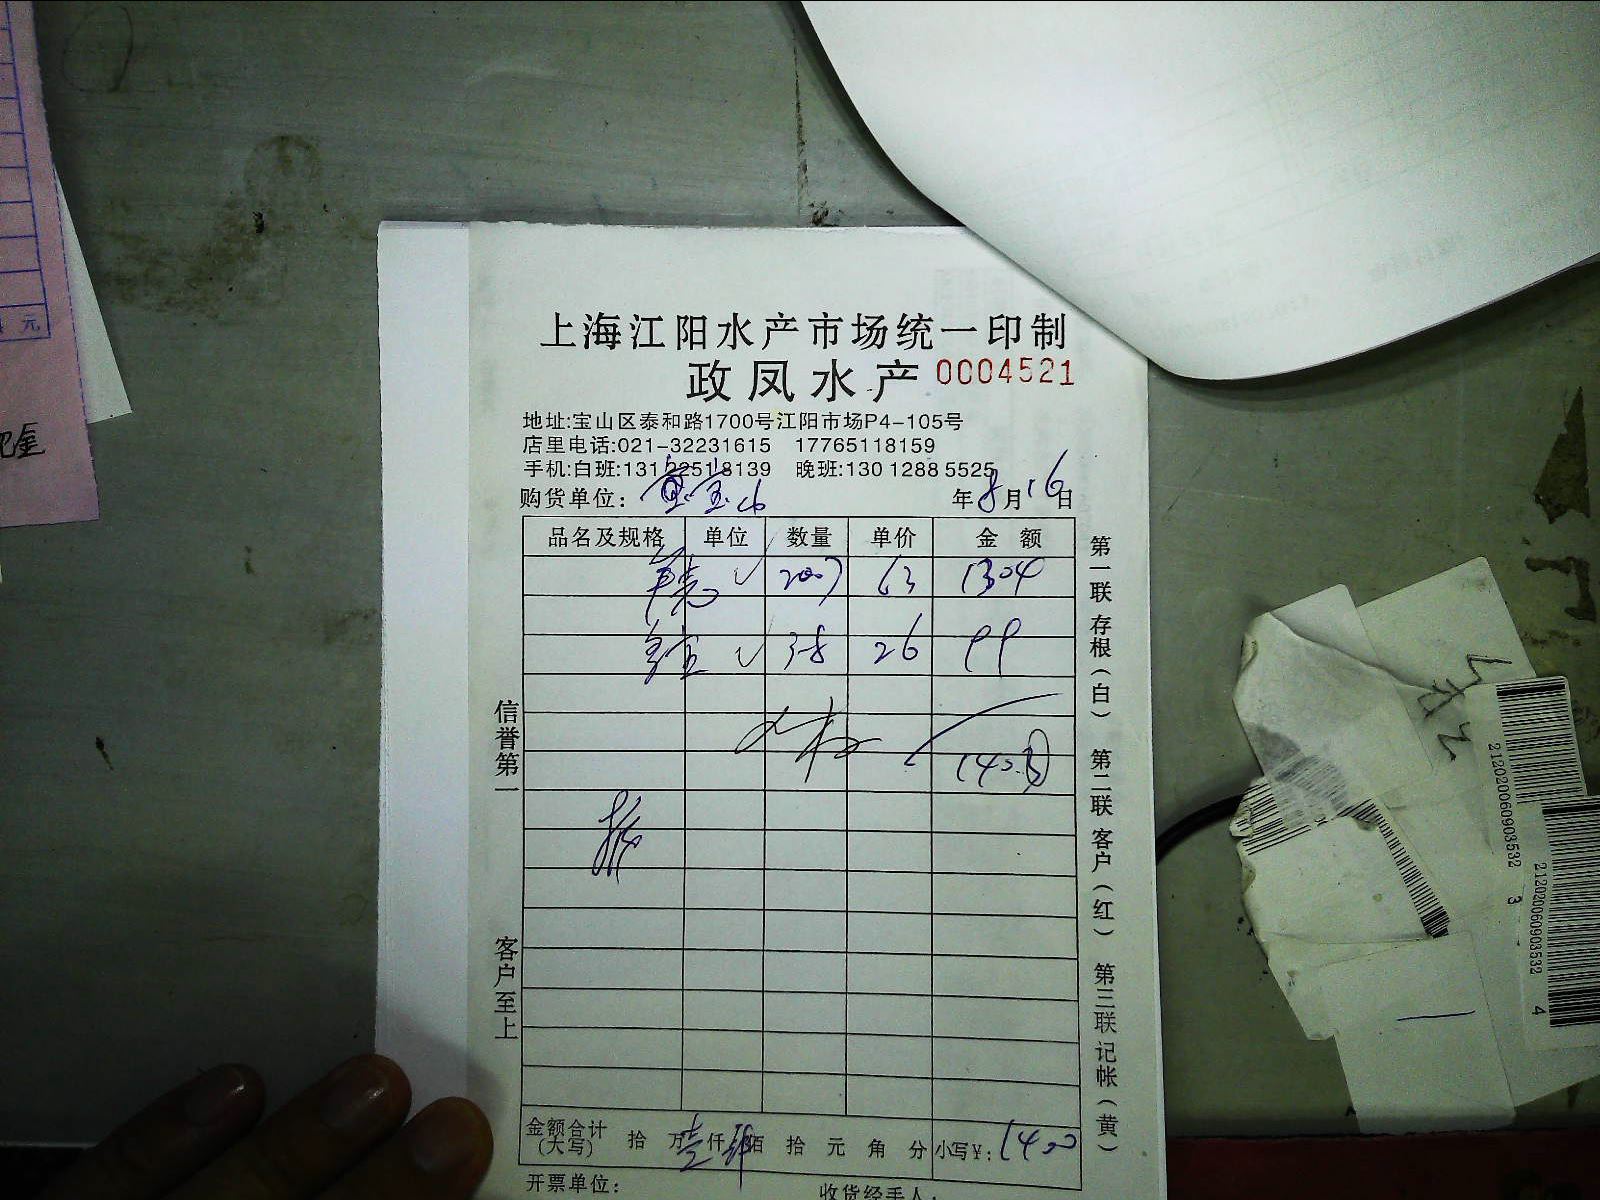 上海江阳水产市场统一印制
政凤水产 0004521
地址:宝山区泰和路1700号江阳市场P4-105号
店里电话:021-32231615 17765118159
手机:白班:131 2251 8139 晚班:130 1288 5525
购货单位: 年8月16日
品名及规格 单位 数量 单价 金 额
2007 63 1304
38 26 99
1403
信誉第一
客户至上
第一联 存根(白) 第二联 客户(红) 第三联 记帐(黄)
金额合计(大写) 拾 万壹仟肆佰 拾 元 角 分 小写¥:1400
开票单位: 收货经手人:
元
现金
212020060903532 3
212020060903532 4